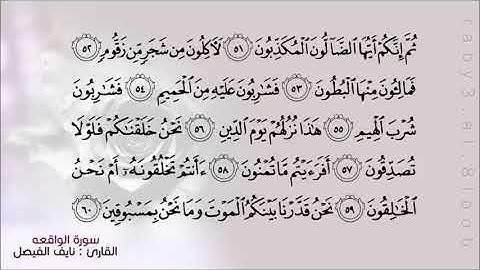 ثُمَّ إِنَّكُمْ أَيُّهَا ٱلضَّآلُّونَ ٱلْمُكَذِّبُونَ ٥١ لَءَاكِلُونَ مِن شَجَرٍ مِّن زَقُّومٍ ٥٢
فَمَالِـُٔونَ مِنْهَا ٱلْبُطُونَ ٥٣ فَشَٰرِبُونَ عَلَيْهِ مِنَ ٱلْحَمِيمِ ٥٤ فَشَٰرِبُونَ
شُرْبَ ٱلْهِيمِ ٥٥ هَٰذَا نُزُلُهُمْ يَوْمَ ٱلدِّينِ ٥٦ نَحْنُ خَلَقْنَٰكُمْ فَلَوْلَا
تُصَدِّقُونَ ٥٧ أَفَرَءَيْتُم مَّا تُمْنُونَ ٥٨ ءَأَنتُمْ تَخْلُقُونَهُۥٓ أَمْ نَحْنُ
ٱلْخَٰلِقُونَ ٥٩ نَحْنُ قَدَّرْنَا بَيْنَكُمُ ٱلْمَوْتَ وَمَا نَحْنُ بِمَسْبُوقِينَ ٦٠
سورة الواقعه
القارئ : نايف الفيصل